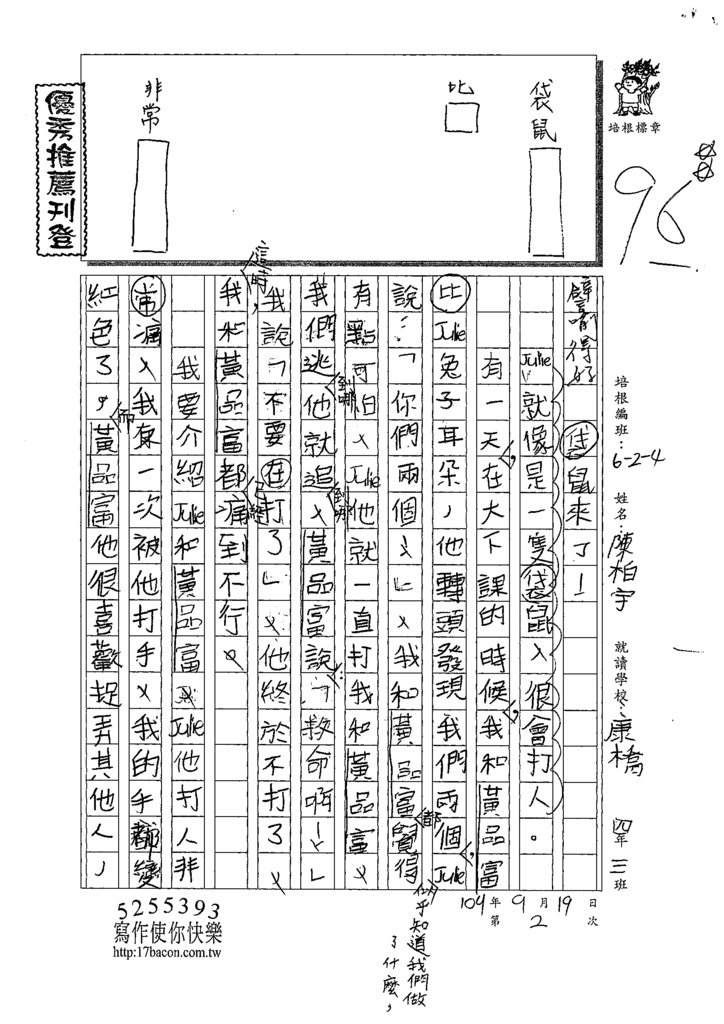 袋鼠
比
非常
優秀推薦刊登
培根標章
96
培根編班：6-2-4
姓名：陳柏宇
就讀學校：康橋
四年三班
104年9月19日
第2次
譬喻得好
袋鼠來了！
Julie就像是一隻袋鼠，很會打人。
有一天，在大下課的時候，我和黃品富
比Julie兔子耳朵，他轉頭發現我們兩個，Julie
似乎知道我們做了什麼，
說：「你們兩個！」，我和黃品富都覺得
有點可怕，Julie他就一直打我和黃品富，
我們逃到哪他就追到哪，黃品富說：「救命啊！」
我說「不要在打了」，他終於不打了，
這時，我和黃品富都已經痛到不行。
我要介紹Julie和黃品富，Julie他打人非
常痛，我有一次被他打手，我的手都變
紅色了，而黃品富他很喜歡捉弄其他人，
5255393
寫作使你快樂
http:17bacon.com.tw